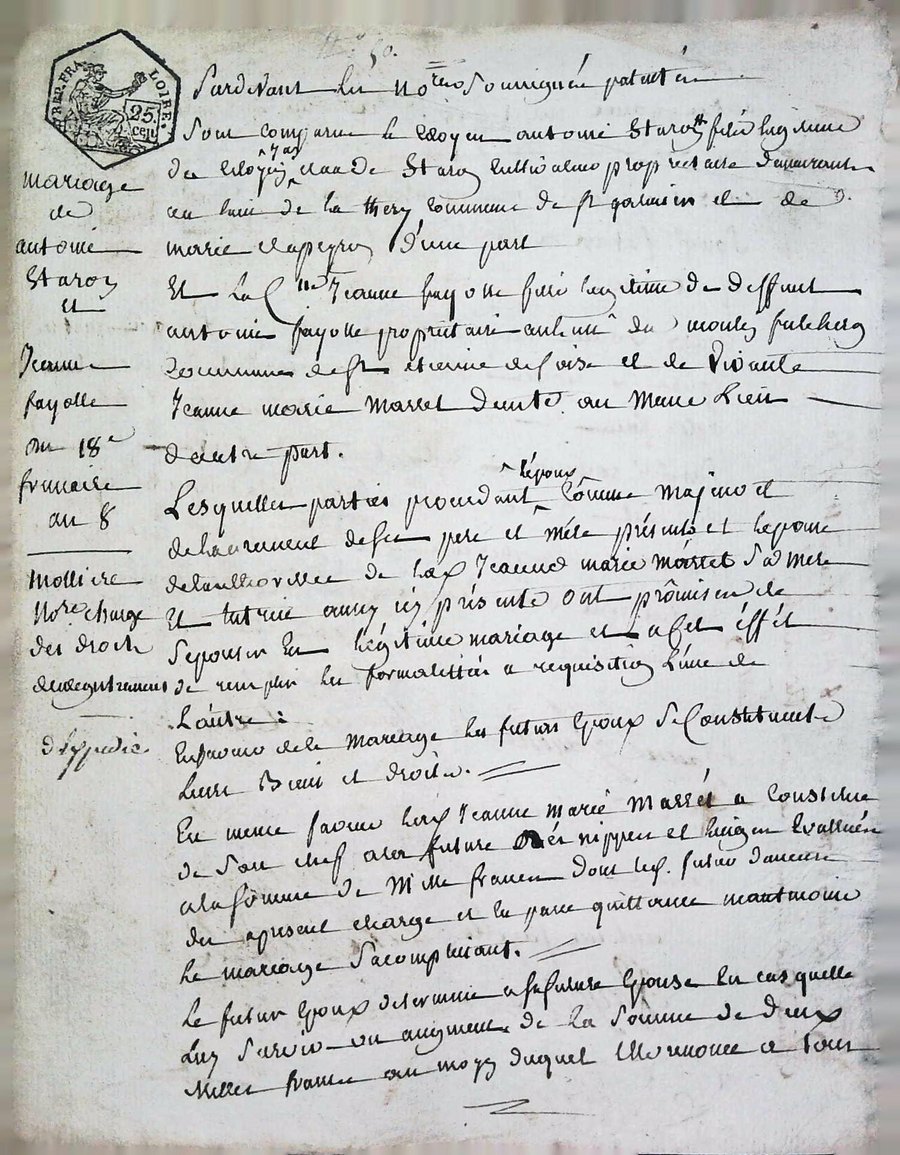 50.
REP. FRA. LOIRE.
25 cen.
Pardevant les No.res Soussignés patentés
Sont comparus le Citoyen antoine Staron fils légitime
du Citoyen Claude Staron Cultivateur propriétaire demeurant
au lieu de la thery Commune de St galmier et de
marie Clapeyron d'une part
Et La C.nne Jeanne fayolle fille légitime de deffunt
antoine fayolle propriétaire du moulin
Commune de St etienne et de Vivante
Jeanne marie Marret audit Meme Lieu
dautre part.
Lesquelles parties procedant l'époux Comme majeur et
de ses pere et mére présents et lepouse
de lauthorité de la C. Jeanne marie marret Sa mere
Et tutrice aussy icy présente ont promis de
Sepouser En légitime mariage et a Cet éffét
de remplir les formalittés a requisition L'une de
L'autre :
En faveur de ce mariage les futurs Epoux Se Constituent
Leurs Biens et droits.
En meme faveur Jeanne Marie Marrét a Constitué
de Son Chef a la future nippes et linges Evalués
a la Somme de Mille francs dont le futur demeure
des apresent chargé et En passe quittance
Le mariage Sacomplissant.
Le futur Epoux a Sa future Epouse En cas quelle
Luy Survive un augment de La Somme de Deux
Milles francs au moyen duquel Elle renonce a tous
mariage
de
antoine
Staron
Et
Jeanne
fayolle
du 18e
frimaire
an 8
Molliere
No.re chargé
des droits
denregistrement
Expedié